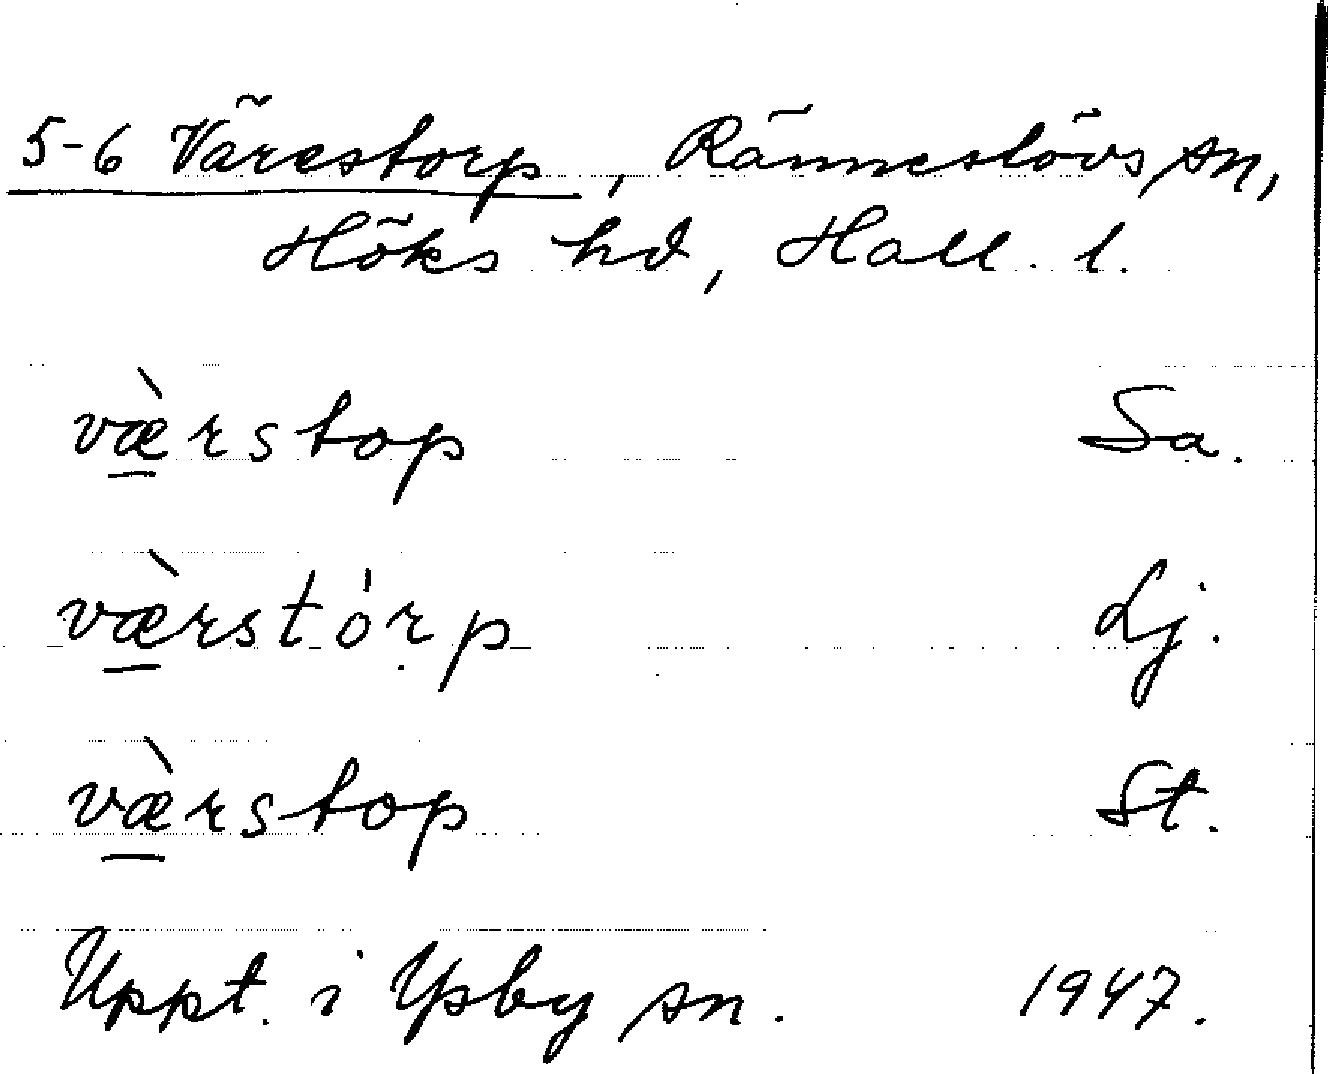 5-6 Värestorp, Ränneslövs sn,
Höks hd, Hall. l.
væ̀rstop Sa.
væ̀rstȯṛp Lj.
væ̀rstop St.
Uppt. i Ysby sn. 1947.